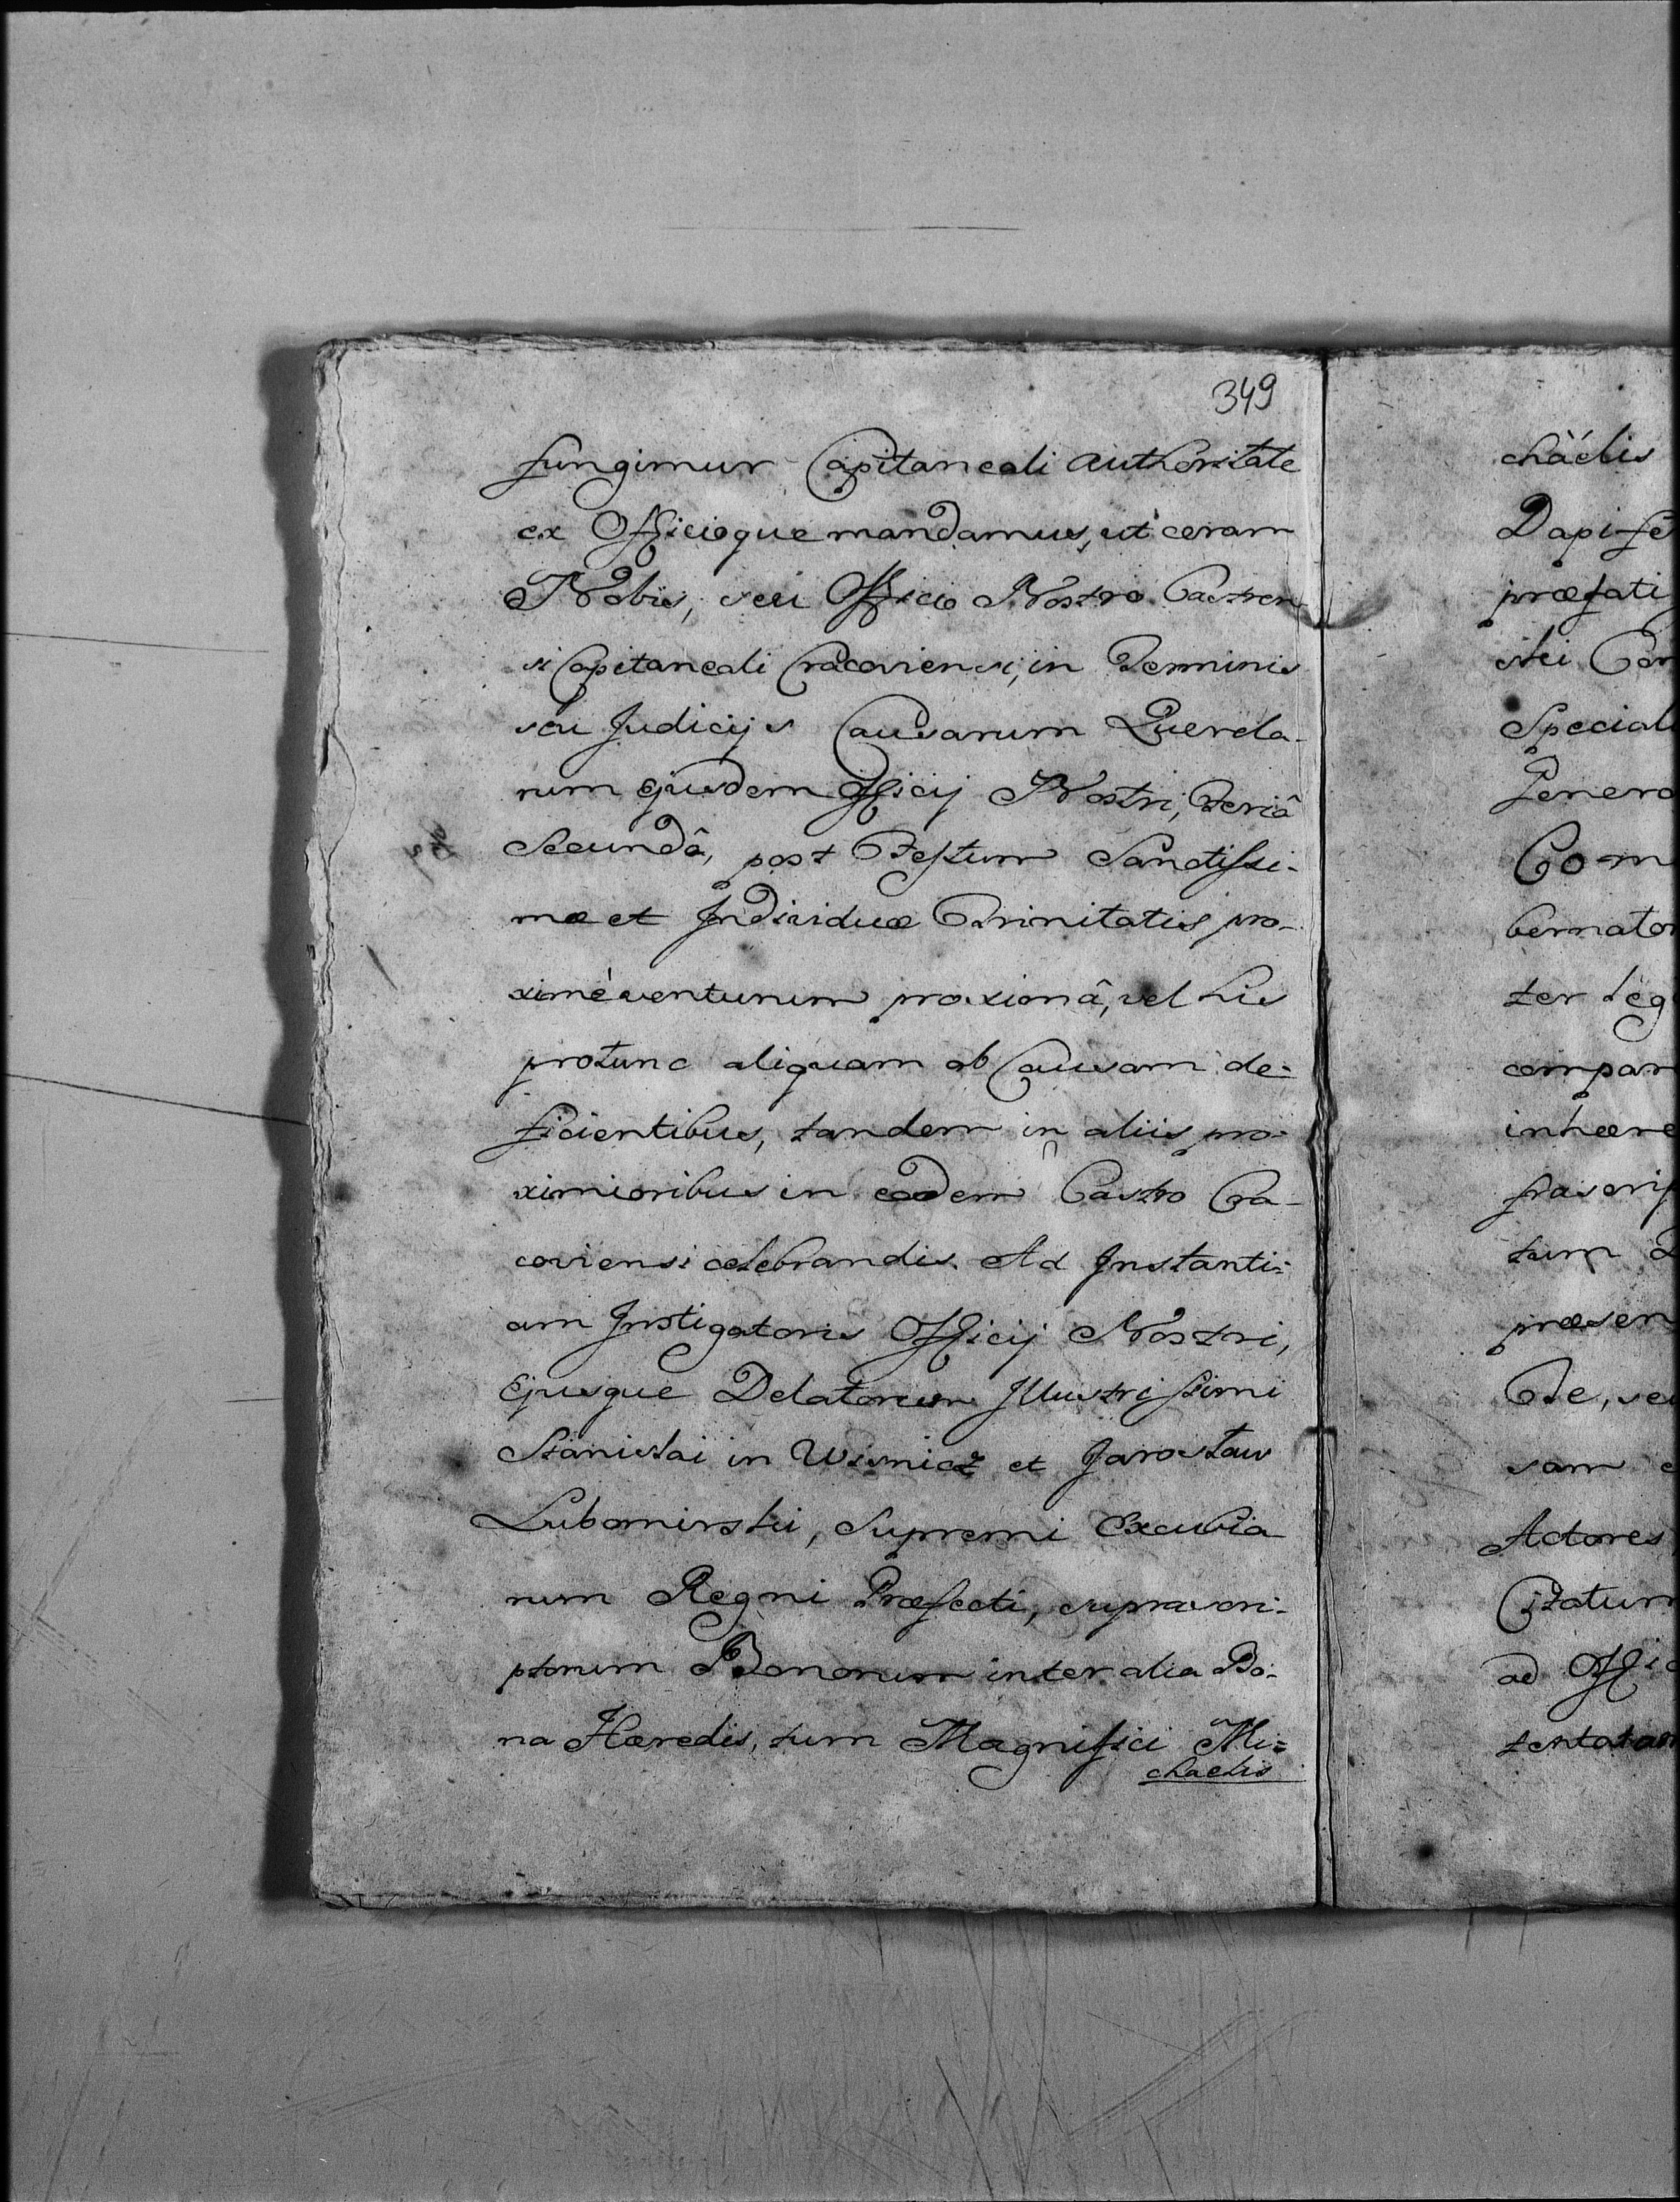 349
fungimur Capitaneali authoritate
ex Officioque mandamus, ut coram
Nobis, seu Officio Nostro Castren
si Capitaneali Cracoviensi, in Terminis
seu Judicijs Causarum Querela-
rum ejusdem Officij Nostri, Feriâ
Secundâ, post Festum Sanctissi-
mæ et Individuæ Trinitatis pro-
ximè venturum proximâ, vel his
protunc aliquam ob Causam de-
ficientibus, tandem in aliis pro-
ximioribus in eodem Castro Cra-
coviensi celebrandis. Ad Instanti-
am Instigatoris Officij Nostri,
Ejusque Delatorum Illustrissimi
Stanislai in Wisnicz et Jaroslaw
Lubomirski, Supremi Excubia
rum Regni Præfecti, suprascri-
ptorum Bonorum inter alia Bo-
na Hæredis, tum Magnifici Mi=
chaelis
chäelis
Dapife
præfati
ski
Special
Genera
Com
bernator
ter leg
compar
inhære
frascrip
tum
præsen
Te, seu
sam
Actores
Citatum
ad Offic